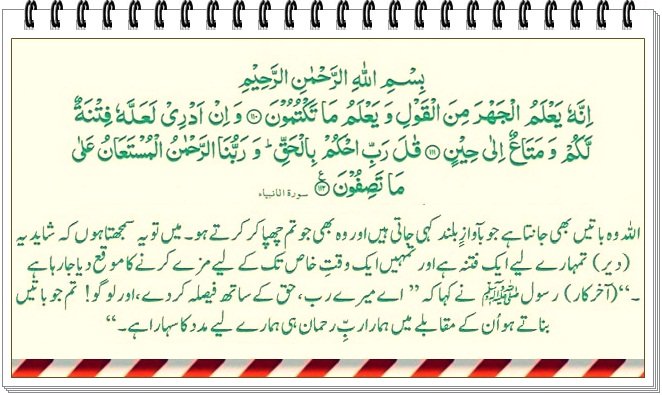 بِسْمِ اللهِ الرَّحْمٰنِ الرَّحِيْمِ
اِنَّهٗ يَعْلَمُ الْجَهْرَ مِنَ الْقَوْلِ وَ يَعْلَمُ مَا تَكْتُمُوْنَ ۝۱۱۰ وَ اِنْ اَدْرِىْ لَعَلَّهٗ فِتْنَةٌ
لَّكُمْ وَ مَتَاعٌ اِلٰى حِيْنٍ ۝۱۱۱ قٰلَ رَبِّ احْكُمْ بِالْحَقِّ ؕ وَ رَبُّنَا الرَّحْمٰنُ الْمُسْتَعَانُ عَلٰى
مَا تَصِفُوْنَ ۝۱۱۲ سورۃ الانبیاء
اللہ وہ باتیں بھی جانتا ہے جو بآوازِ بلند کہی جاتی ہیں اور وہ بھی جو تم چھپا کر کرتے ہو۔ میں تو یہ سمجھتا ہوں کہ شاید یہ
(دیر) تمہارے لیے ایک فتنہ ہے اور تمہیں ایک وقتِ خاص تک کے لیے مزے کرنے کا موقع دیا جا رہا ہے
۔“(آخر کار) رسول ﷺ نے کہا کہ ” اے میرے رب، حق کے ساتھ فیصلہ کر دے، اور لوگو! تم جو باتیں
بناتے ہو اُن کے مقابلے میں ہمارا ربِّ رحمان ہی ہمارے لیے مدد کا سہارا ہے۔“